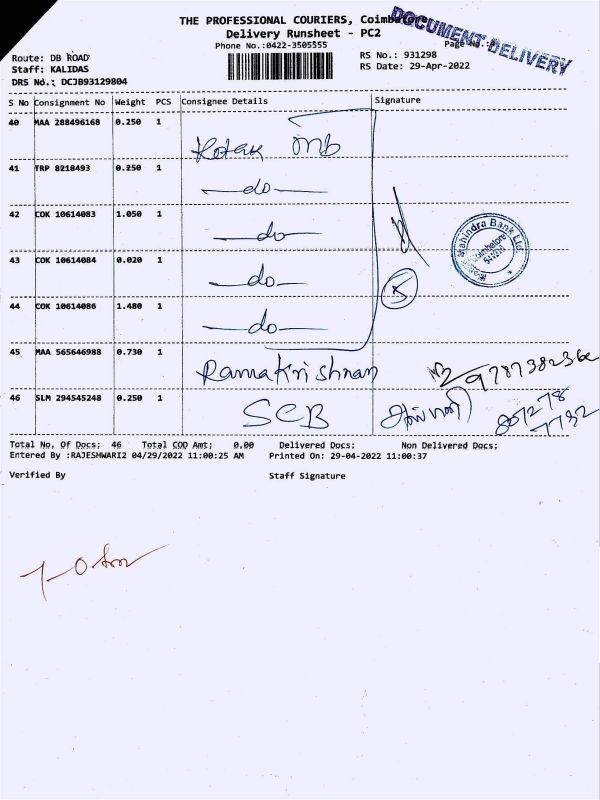 THE PROFESSIONAL COURIERS, Coimbatore
Delivery Runsheet - PC2
DOCUMENT DELIVERY
Phone No.:0422-3505555
Page No.:
Route: DB ROAD
Staff: KALIDAS
DRS No.: DCJB93129804
RS No.: 931298
RS Date: 29-Apr-2022
S No Consignment No Weight PCS Consignee Details Signature
40 MAA 288496168 0.250 1 Kotak MB
41 TRP 8218493 0.250 1 —do—
42 COK 10614083 1.050 1 —do—
43 COK 10614084 0.020 1 —do—
44 COK 10614086 1.480 1 —do—
5
Mahindra Bank Ltd.
Coimbatore
45 MAA 565646988 0.730 1 Ramakrishnan
46 SLM 294545248 0.250 1 SCB
Total No. Of Docs: 46 Total COD Amt: 0.00 Delivered Docs: Non Delivered Docs:
Entered By :RAJESHWARI2 04/29/2022 11:00:25 AM Printed On: 29-04-2022 11:00:37
Verified By Staff Signature